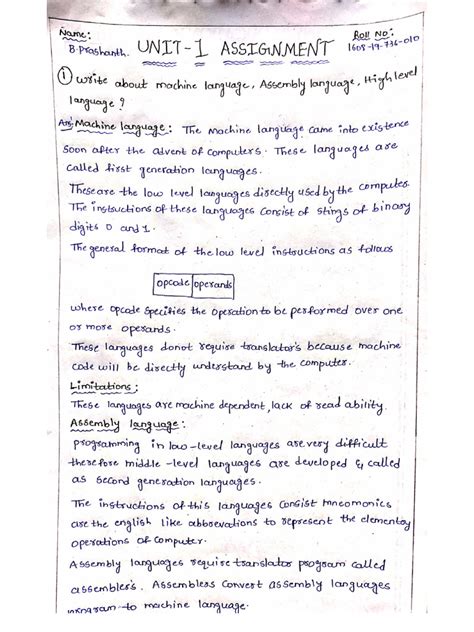 Name:
B.Prashanth.
UNIT-1 ASSIGNMENT
Roll No:
1608-19-736-010
① Write about machine language, Assembly language, High level
language?
Ans: Machine language: The Machine language came into existence
soon after the advent of computers. These languages are
called first generation languages.
These are the low level languages directly used by the computer.
The instuctions of these languages Consist of stings of binary
digits 0 and 1.
The general format of the low level instructions as follows
opcode operands
where opcode specifies the operation to be performed over one
or more operands.
These languages donot require translator's because machine
code will be directly understand by the computer.
Limitations:
These languages are machine dependent, lack of read ability.
Assembly language:
programming in low-level languages are very difficult
therefore middle-level languages are developed & called
as second generation languages.
The instructions of this languages consist Mneomonics
are the english like abbrevations to represent the elementory
operations of computer.
Assembly languages require translator program called
assembler's. Assemblers convert assembly languages
program to machine language.